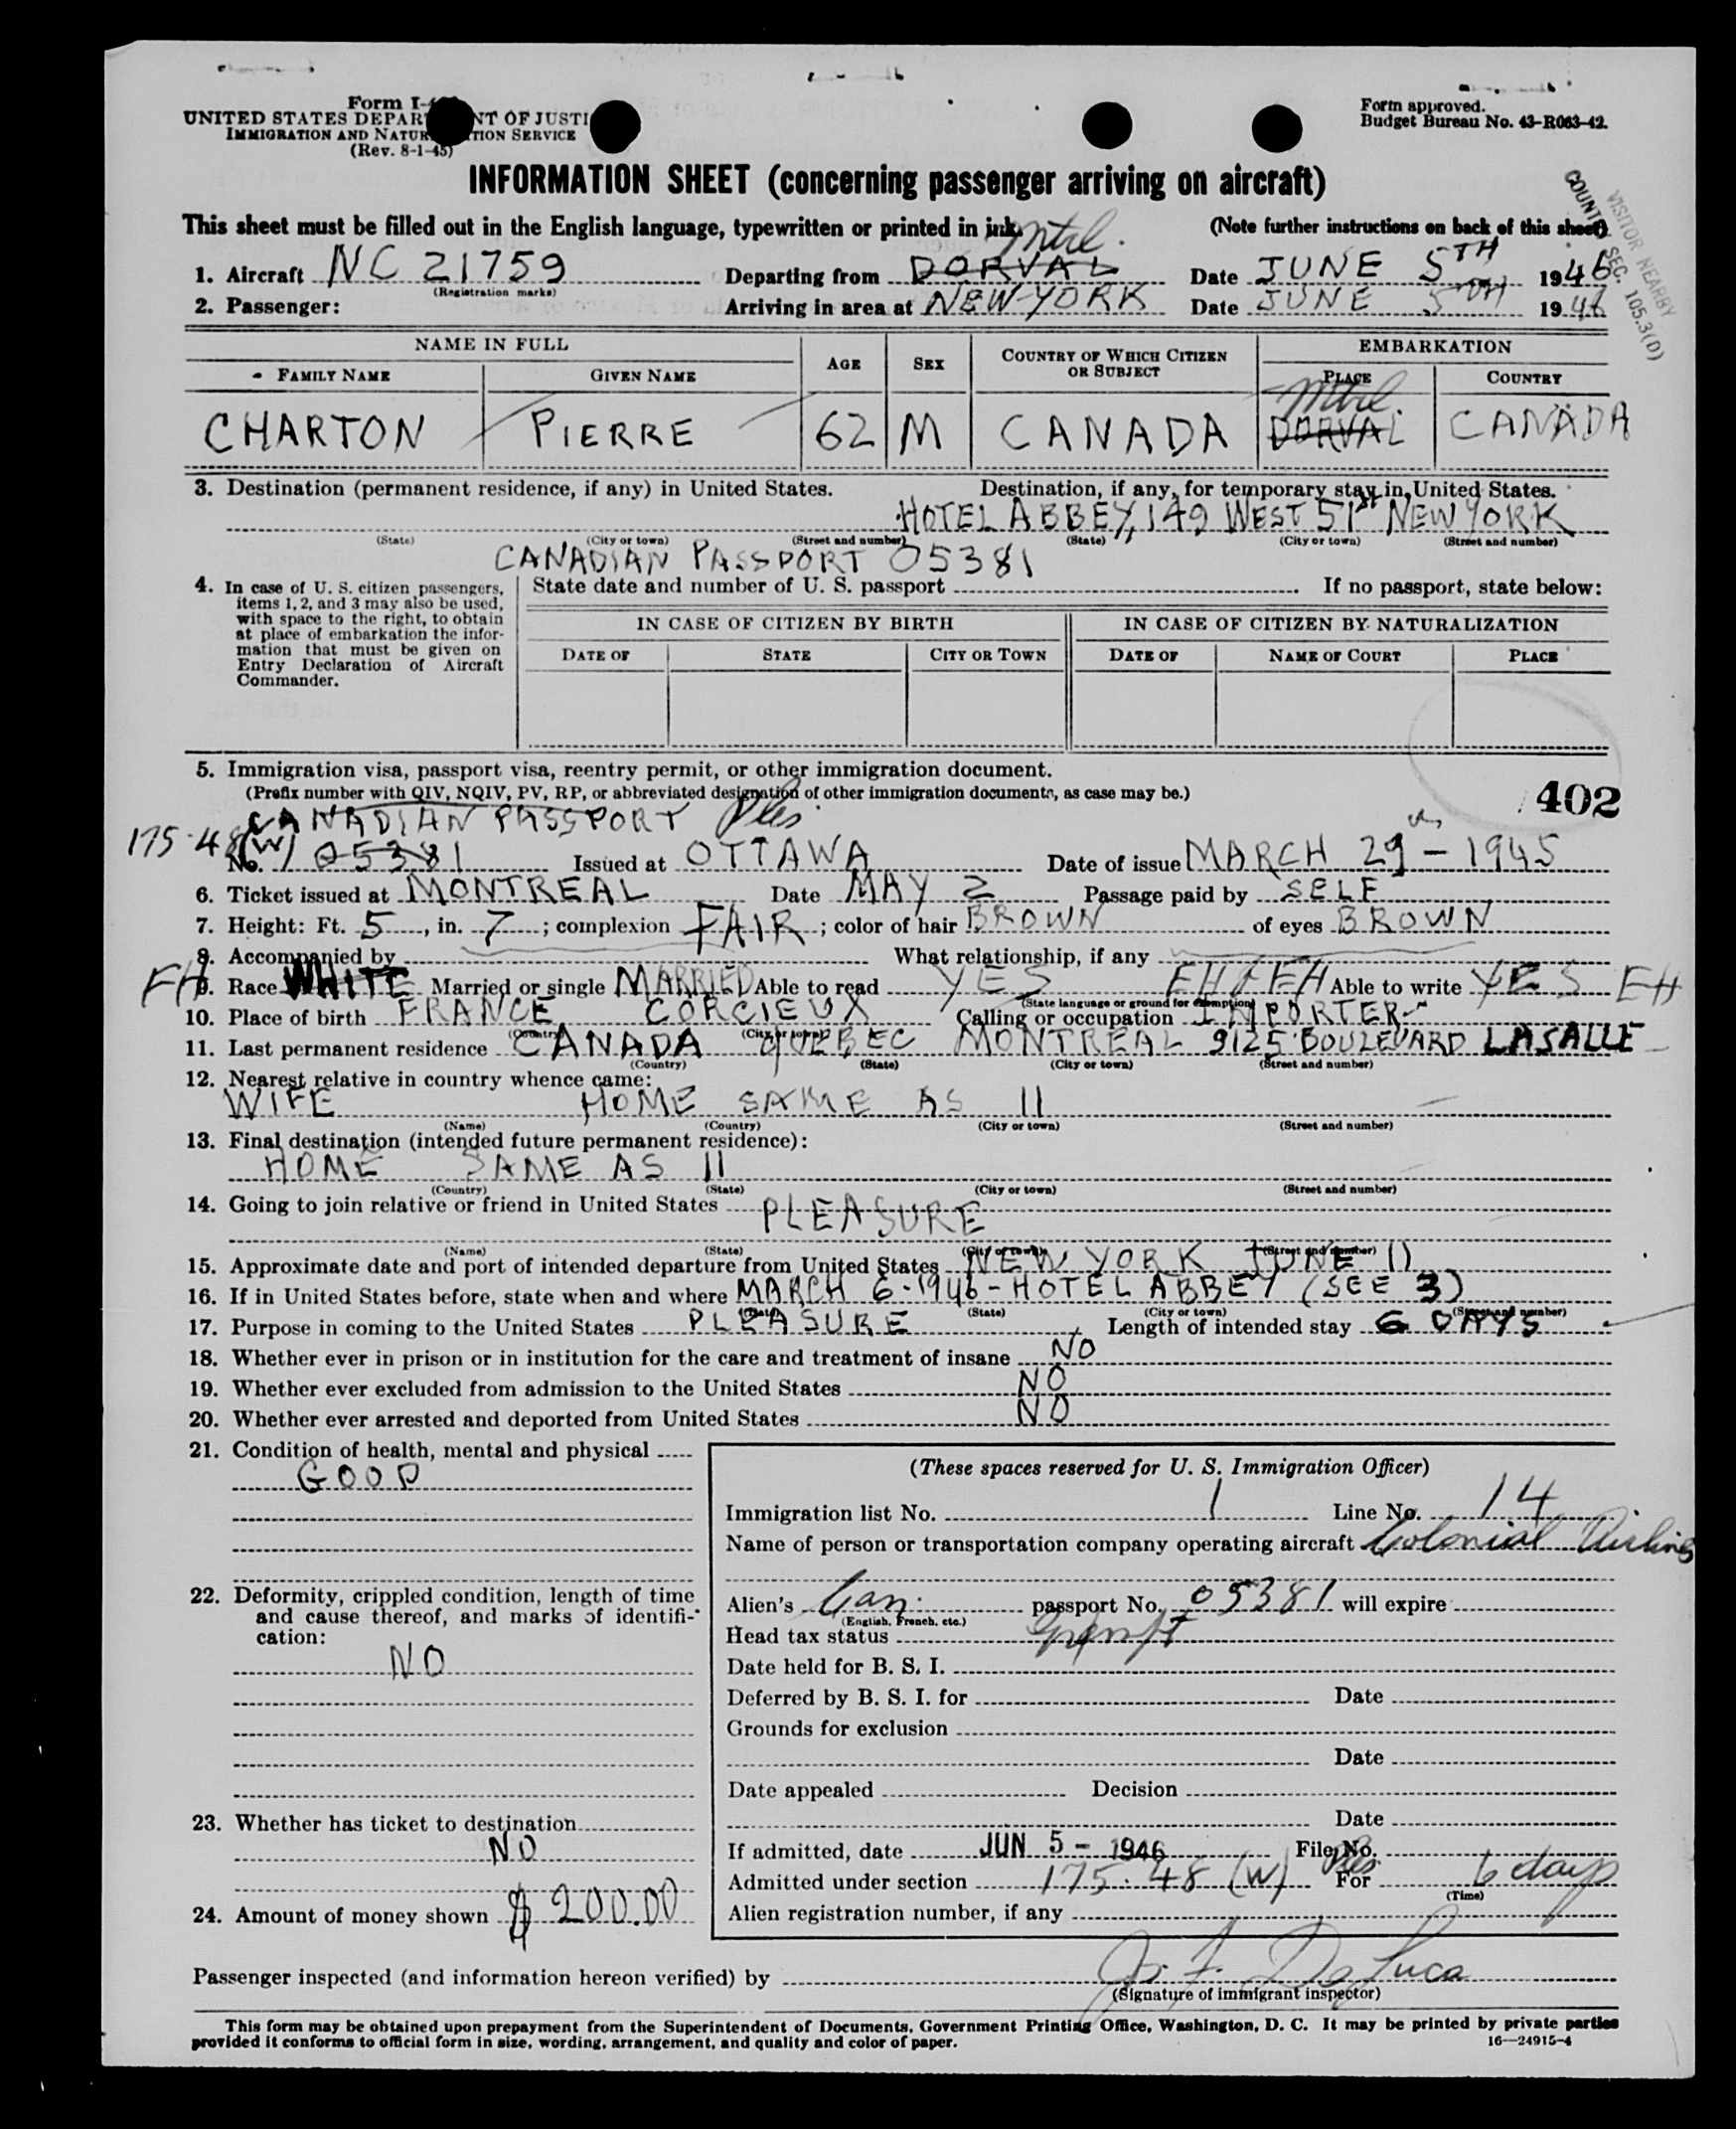 Form I-
UNITED STATES DEPAR NT OF JUSTI
IMMIGRATION AND NATUR TION SERVICE
(Rev. 8-1-45)
Form approved.
Budget Bureau No. 43-R063-42.
INFORMATION SHEET (concerning passenger arriving on aircraft)
COUNTRY SEC. 105.3(D)
VISITOR NEARBY
This sheet must be filled out in the English language, typewritten or printed in ink. (Note further instructions on back of this sheet)
Mtrl.
1. Aircraft NC 21759 Departing from DORVAL Date JUNE 5TH 1946
(Registration marks)
2. Passenger: Arriving in area at NEW-YORK Date JUNE 5TH 1946
NAME IN FULL AGE SEX COUNTRY OF WHICH CITIZEN OR SUBJECT EMBARKATION
FAMILY NAME GIVEN NAME PLACE COUNTRY
Mtrl.
CHARTON PIERRE 62 M CANADA DORVAL CANADA
3. Destination (permanent residence, if any) in United States. Destination, if any, for temporary stay in United States.
HOTEL ABBEY, 149 WEST 51st NEW YORK
(State) (City or town) (Street and number) (State) (City or town) (Street and number)
CANADIAN PASSPORT 05381
4. In case of U. S. citizen passengers, items 1, 2, and 3 may also be used, with space to the right, to obtain at place of embarkation the information that must be given on Entry Declaration of Aircraft Commander.
State date and number of U. S. passport If no passport, state below:
IN CASE OF CITIZEN BY BIRTH IN CASE OF CITIZEN BY NATURALIZATION
DATE OF STATE CITY OR TOWN DATE OF NAME OF COURT PLACE
5. Immigration visa, passport visa, reentry permit, or other immigration document.
(Prefix number with QIV, NQIV, PV, RP, or abbreviated designation of other immigration documents, as case may be.)
402
CANADIAN PASSPORT
175.48(W)
No. 05381 Issued at OTTAWA Date of issue MARCH 29th - 1945
6. Ticket issued at MONTREAL Date MAY 2 Passage paid by SELF
7. Height: Ft. 5, in. 7; complexion FAIR; color of hair BROWN of eyes BROWN
8. Accompanied by What relationship, if any
FH 9. Race WHITE Married or single MARRIED Able to read YES FH FH Able to write YES FH
(State language or ground for exemption)
10. Place of birth FRANCE CORCIEUX Calling or occupation IMPORTER
(Country) (City or town)
11. Last permanent residence CANADA QUEBEC MONTREAL 9125 BOULEVARD LASALLE
(Country) (State) (City or town) (Street and number)
12. Nearest relative in country whence came:
WIFE HOME SAME AS 11
(Name) (Country) (City or town) (Street and number)
13. Final destination (intended future permanent residence):
HOME SAME AS 11
(Country) (State) (City or town) (Street and number)
14. Going to join relative or friend in United States PLEASURE
(Name) (State) (City or town) (Street and number)
15. Approximate date and port of intended departure from United States NEW YORK JUNE 11
16. If in United States before, state when and where MARCH 6-1946 - HOTEL ABBEY (SEE 3)
(Date) (State) (City or town) (Street and number)
17. Purpose in coming to the United States PLEASURE Length of intended stay 6 DAYS
18. Whether ever in prison or in institution for the care and treatment of insane NO
19. Whether ever excluded from admission to the United States NO
20. Whether ever arrested and deported from United States NO
21. Condition of health, mental and physical
GOOD
22. Deformity, crippled condition, length of time and cause thereof, and marks of identification:
NO
23. Whether has ticket to destination
NO
24. Amount of money shown $ 200.00
(These spaces reserved for U. S. Immigration Officer)
Immigration list No. 1 Line No. 14
Name of person or transportation company operating aircraft Colonial Airlines
Alien's Can. passport No. 05381 will expire
(English, French, etc.)
Head tax status Exempt
Date held for B. S. I.
Deferred by B. S. I. for Date
Grounds for exclusion
Date
Date appealed Decision
Date
If admitted, date JUN 5 - 1946 File No.
Admitted under section 175.48 (W) For 6 days
(Time)
Alien registration number, if any
Passenger inspected (and information hereon verified) by J. F. De Luca
(Signature of immigrant inspector)
This form may be obtained upon prepayment from the Superintendent of Documents, Government Printing Office, Washington, D. C. It may be printed by private parties
provided it conforms to official form in size, wording, arrangement, and quality and color of paper.
16—24915-4